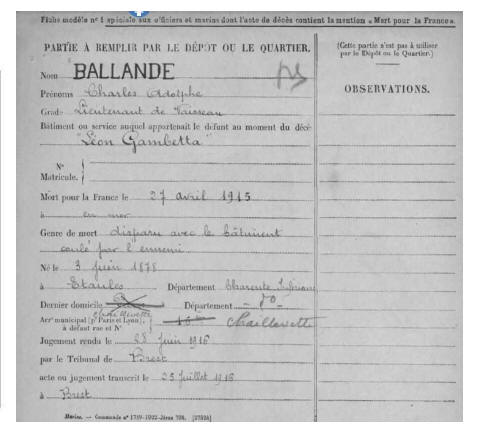 Fiche modèle n° 1 spéciale aux officiers et marins dont l'acte de décès contient la mention « Mort pour la France ».
PARTIE À REMPLIR PAR LE DÉPÔT OU LE QUARTIER.
(Cette partie n'est pas à utiliser
par le Dépôt ou le Quartier.)
Nom BALLANDE
OBSERVATIONS.
Prénoms Charles Adolphe
Grade Lieutenant de Vaisseau
Bâtiment ou service auquel appartenait le défunt au moment du décè
"Léon Gambetta"
N°
Matricule.
Mort pour la France le 27 avril 1915
à en mer
Genre de mort disparu avec le bâtiment
coulé par l'ennemi
Né le 3 juin 1878
à Etaules Département Charente Inférieure
Dernier domicile Département - do -
Chaillevette
Arrt municipal (pr Paris et Lyon), Chaillevette
à défaut rue et N°
Jugement rendu le 28 juin 1916
par le Tribunal de Brest
acte ou jugement transcrit le 25 juillet 1916
à Brest
Marine. — Commande n° 1759-1922-Jéras 708. [27824]